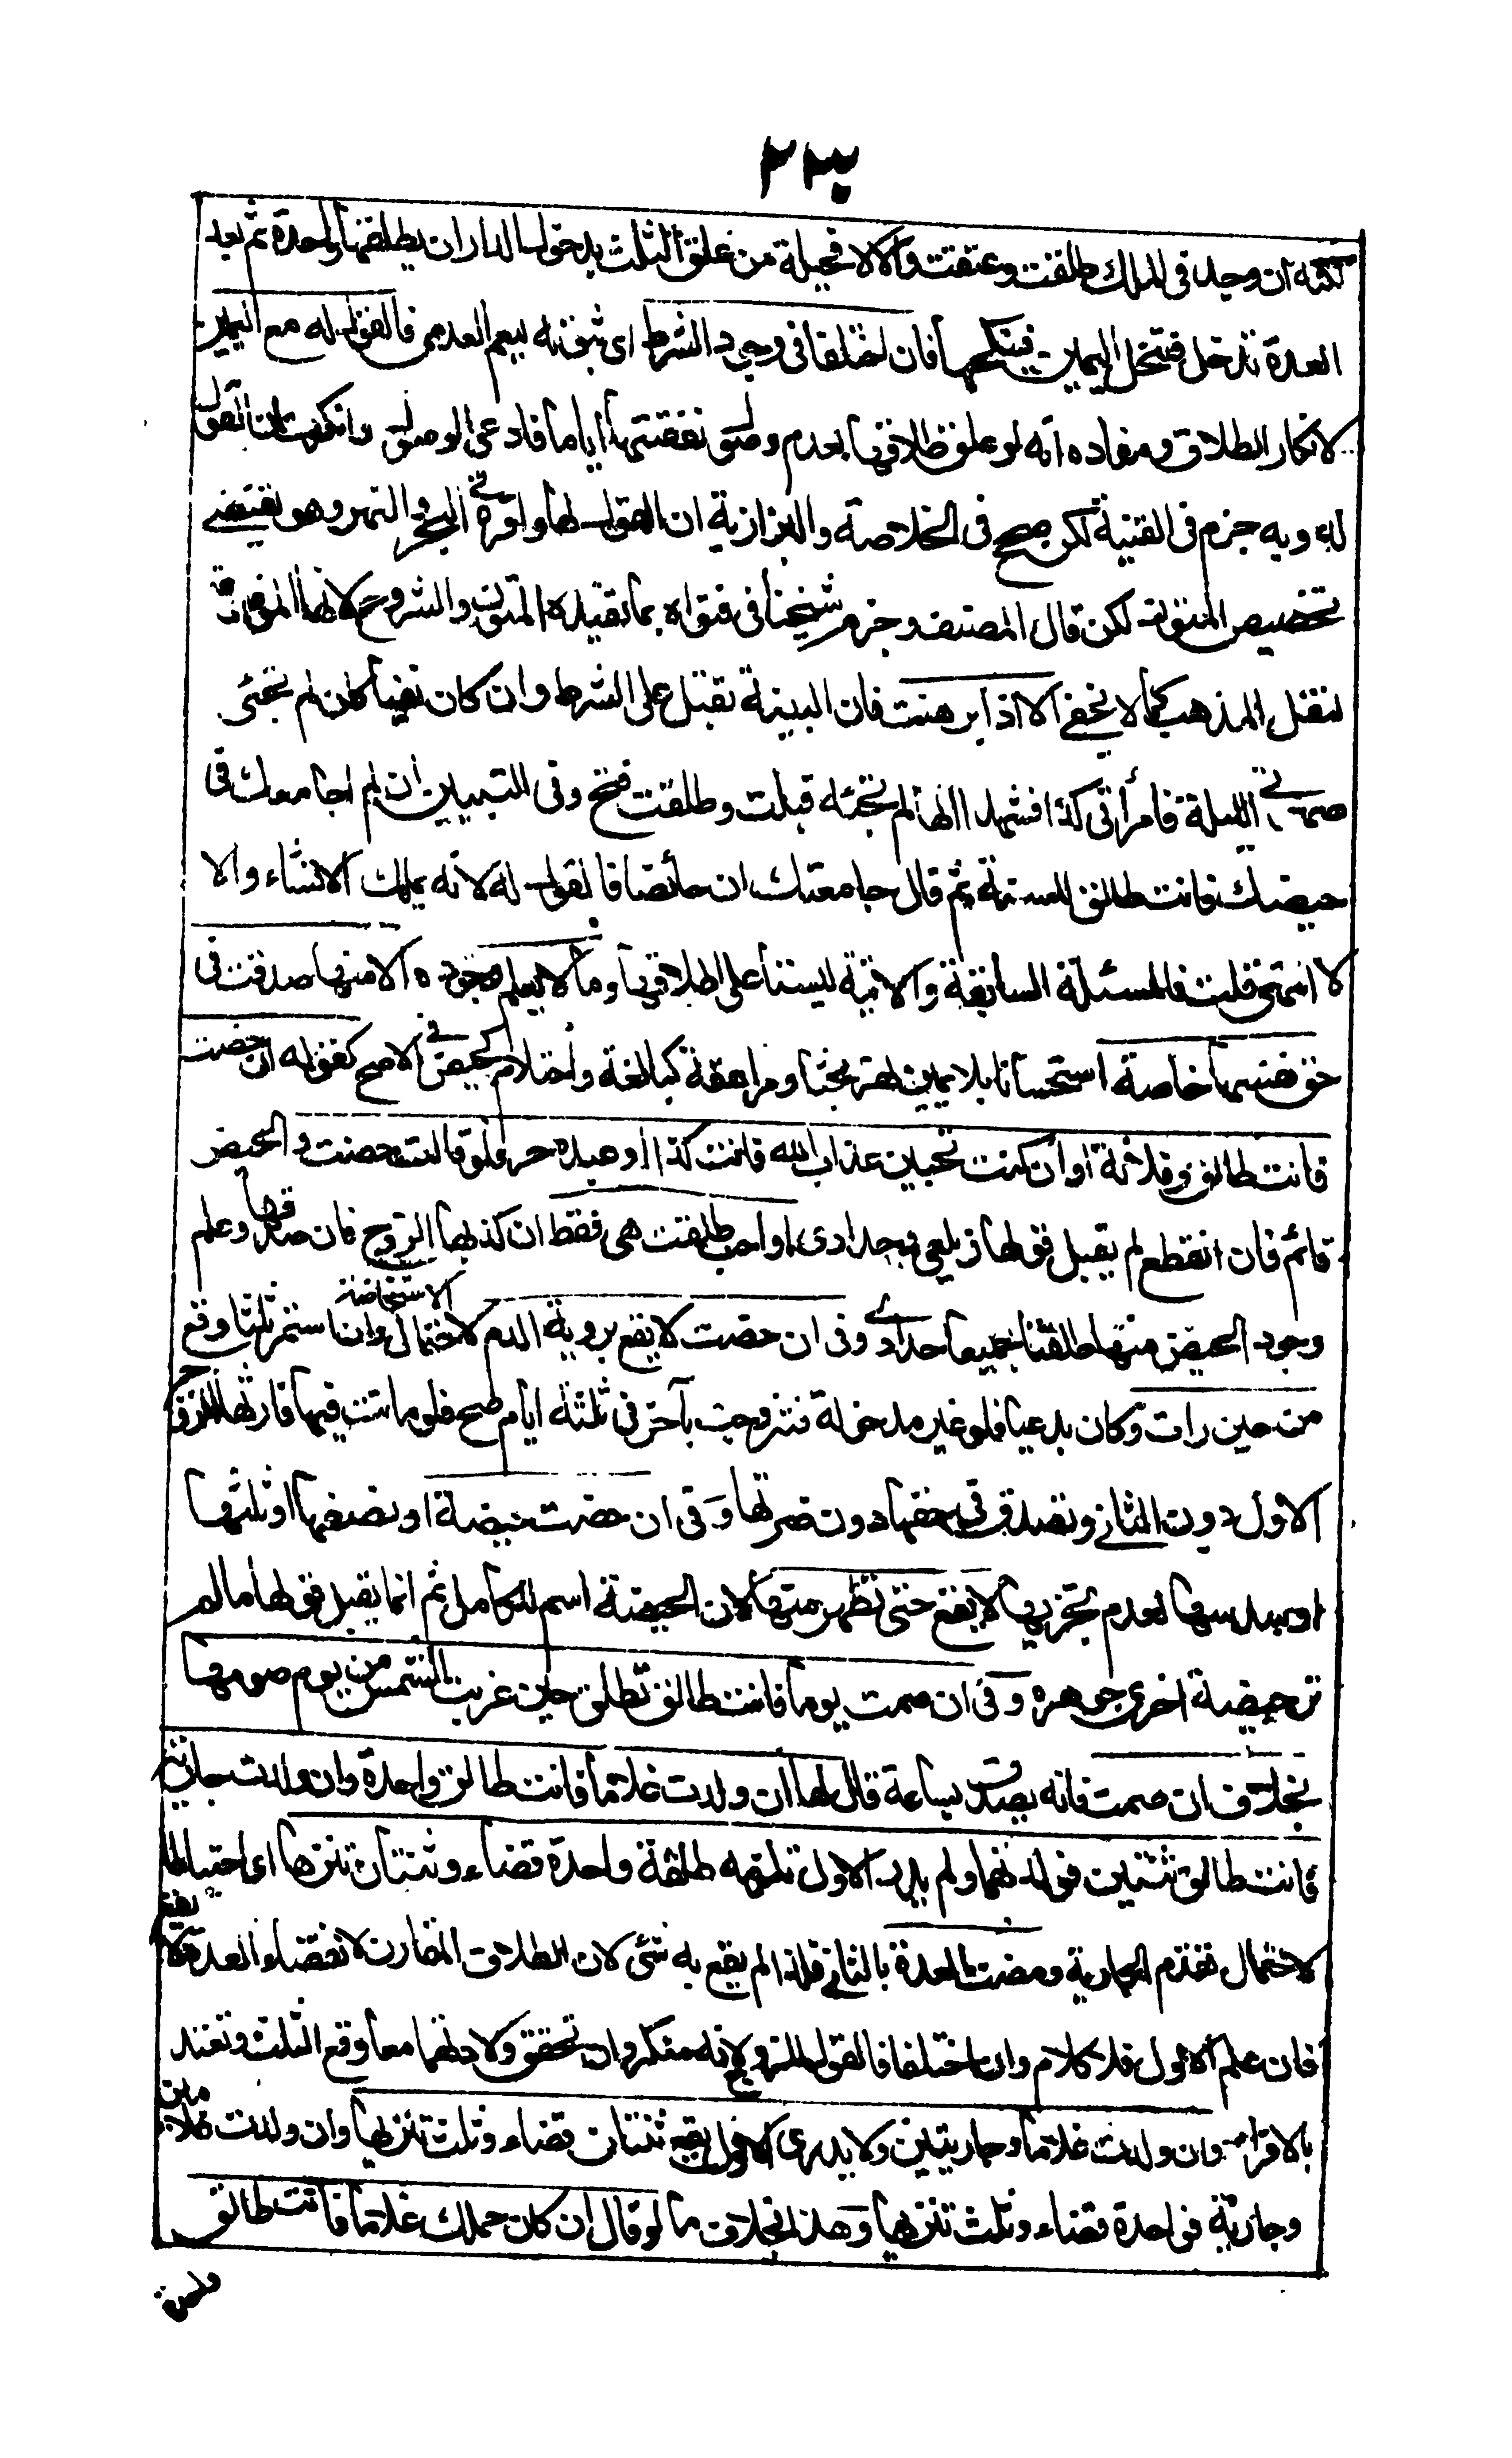 ٢٢٣
لكنه ان وجد في الملك طلقت وعتقت والا لا فحيلة من علق الثلث بدخول الدار ان يطلقها واحدة ثم بعد
العدة تدخل فتنحل اليمين فينكحها فان اختلفا في وجود الشرط اى ثبوته ليعم العدمى فالقول له مع اليمين
لانكار الطلاق ومفاده انه لو علق طلاقها بعدم وصول نفقتها اياما فادعى الوصول وانكرت ان القول
له وبه جزم في القنية لكن صحح في الخلاصة والبزازية ان القول لها واقره في البحر والنهر وهو يقتضى
تخصيص المتون لكن قال المصنف وجزم شيخنا في فتواه بما تفيده المتون والشروح لانها الموضوعة
لنقل المذهب كما لا يخفى الا اذا برهنت فان البينة تقبل على الشرط وان كان نفيا كان لم تجئ
صهرتى الليلة فامرأتى كذا فشهدا انها لم تجئه قبلت وطلقت فتح وفى التبيين ان لم اجامعك في
حيضك فانت طالق للسنة ثم قال جامعتك ان حائضا فالقول له لانه يملك الانشاء والا
لا انتهى قلت فالمسئلة السابقة والاتية ليستا على اطلاقهما وما لا يعلم وجوده الا منها صدقت في
حق نفسها خاصة استحسانا بلا يمين نهر بحثا ومراهقة كبالغة واحتلام كحيض في الاصح كقوله ان حضت
فانت طالق وفلانة او ان كنت تحبين عذاب الله فانت كذا او عبده حر فلو قالت حضت والحيض
قائم فان انقطع لم يقبل قولها زيلعى وحدادى او احب طلقت هى فقط ان كذبها الزوج فان صدقها وعلم
وجود الحيض منها طلقتا جميعا حدادى وفى ان حضت لا يقع برؤية الدم لاحتمال الاستحاضة وان استمر ثلثا وقع
من حين رات وكان بدعيا فلو غير مدخولة فتزوجت بآخر في ثلثة ايام صح فلو ماتت فيها فارثها للزوج
الاول دون الثانى وتصدق في حقها دون ضرتها وفى ان حضت حيضة او نصفها او ثلثها
او سدسها لعدم تجزيها لا يقع حتى تطهر منها لان الحيضة اسم للكامل ثم انما يقبل قولها ما لم
تر حيضة اخرى جوهره وفى ان صمت يوما فانت طالق تطلق حين غربت الشمس من يوم صومها
بخلاف ان صمت فانه يصدق بساعة قال لها ان ولدت غلاما فانت طالق واحدة وان ولدت جارية
فانت طالق ثنتين فولدتهما ولم يدر الاول تلزمه طلقة واحدة قضاء وثنتان تنزها اى احتياطا
لاحتمال تقدم الجارية ومضت العدة بالثانى فلذا لم يقع به شئ لان الطلاق المقارن لانقضاء العدة لا يقع
فان علم الاول فلا كلام وان اختلفا فالقول للزوج لانه منكر وان تحقق ولادتهما معا وقع الثلث وتعتد
بالاقراء وان ولدت غلاما وجاريتين ولا يدرى الاول يقع ثنتان قضاء وثلث تنزها وان ولدت غلامين
وجارية فواحدة قضاء وثلث تنزها وهذا بخلاف ما لو قال ان كان حملك غلاما فانت طالق